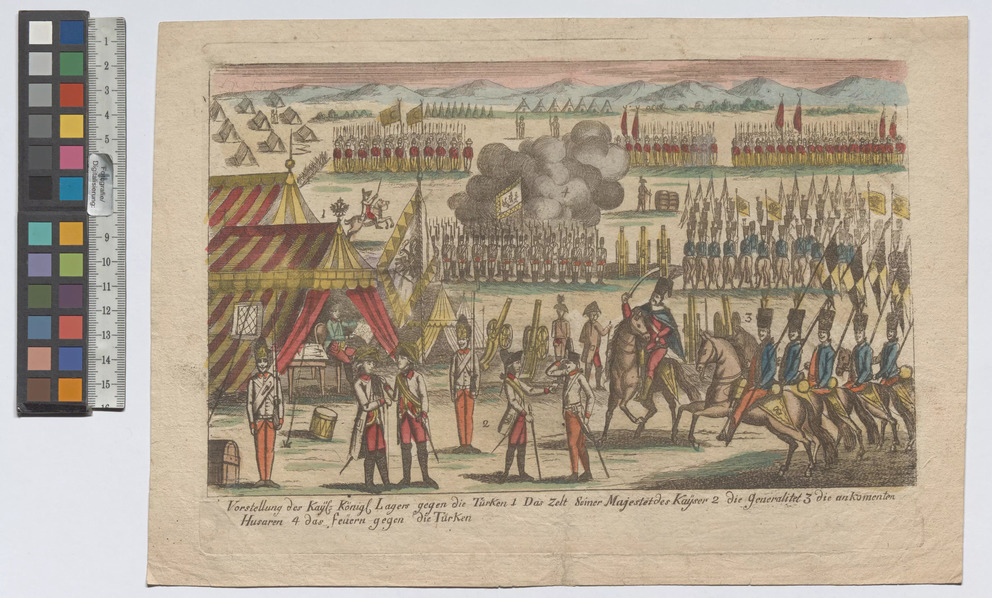 Vorstellung des Kaÿsl: Königl. Lagers gegen die Türken 1 Das Zelt Seiner Majestet des Kaÿser 2 die Generalitet 3 die ankomenten
Husaren 4 das feuern gegen die Türken
1
2
3
4
1
2
3
4
5
9
10
11
12
13
14
15
Fotografien
Digitalisierung